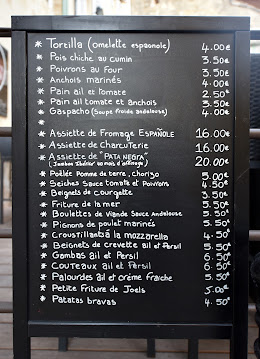 * Tortilla (omelette espagnole) 4.00€
* Pois chiche au cumin 3.50€
* Poivrons au Four 3.50€
* Anchois marinés 4.00€
* Pain ail et Tomate 2.50€
* Pain ail tomate et anchois 3.50€
* Gaspacho (soupe froide andalouse) 4.00€
*
* Assiette de Fromage ESPAÑOLE 16.00€
* Assiette de Charcuterie 16.00€
* Assiette de "PATA NEGRA" 20.00€
(Jambon Ibérique d'affinage)
* Poêlée Pomme de terre, chorizo 5.00€
* Seiches Sauce tomate et Poivrons 4.50€
* Beignets de Courgette 3.50€
* Friture de la mer 5.50€
* Boulettes de Viande Sauce Andalouse 5.50€
* Pignons de poulet marinés 5.50€
* Croustillants à la mozzarella 4.50€
* Beignets de crevette ail et Persil 5.50€
* Gambas ail et Persil 6.50€
* Couteaux ail et Persil 6.50€
* Palourdes ail et crème fraiche 5.50€
* Petite Friture de Joels 5.00€
* Patatas bravas 4.50€